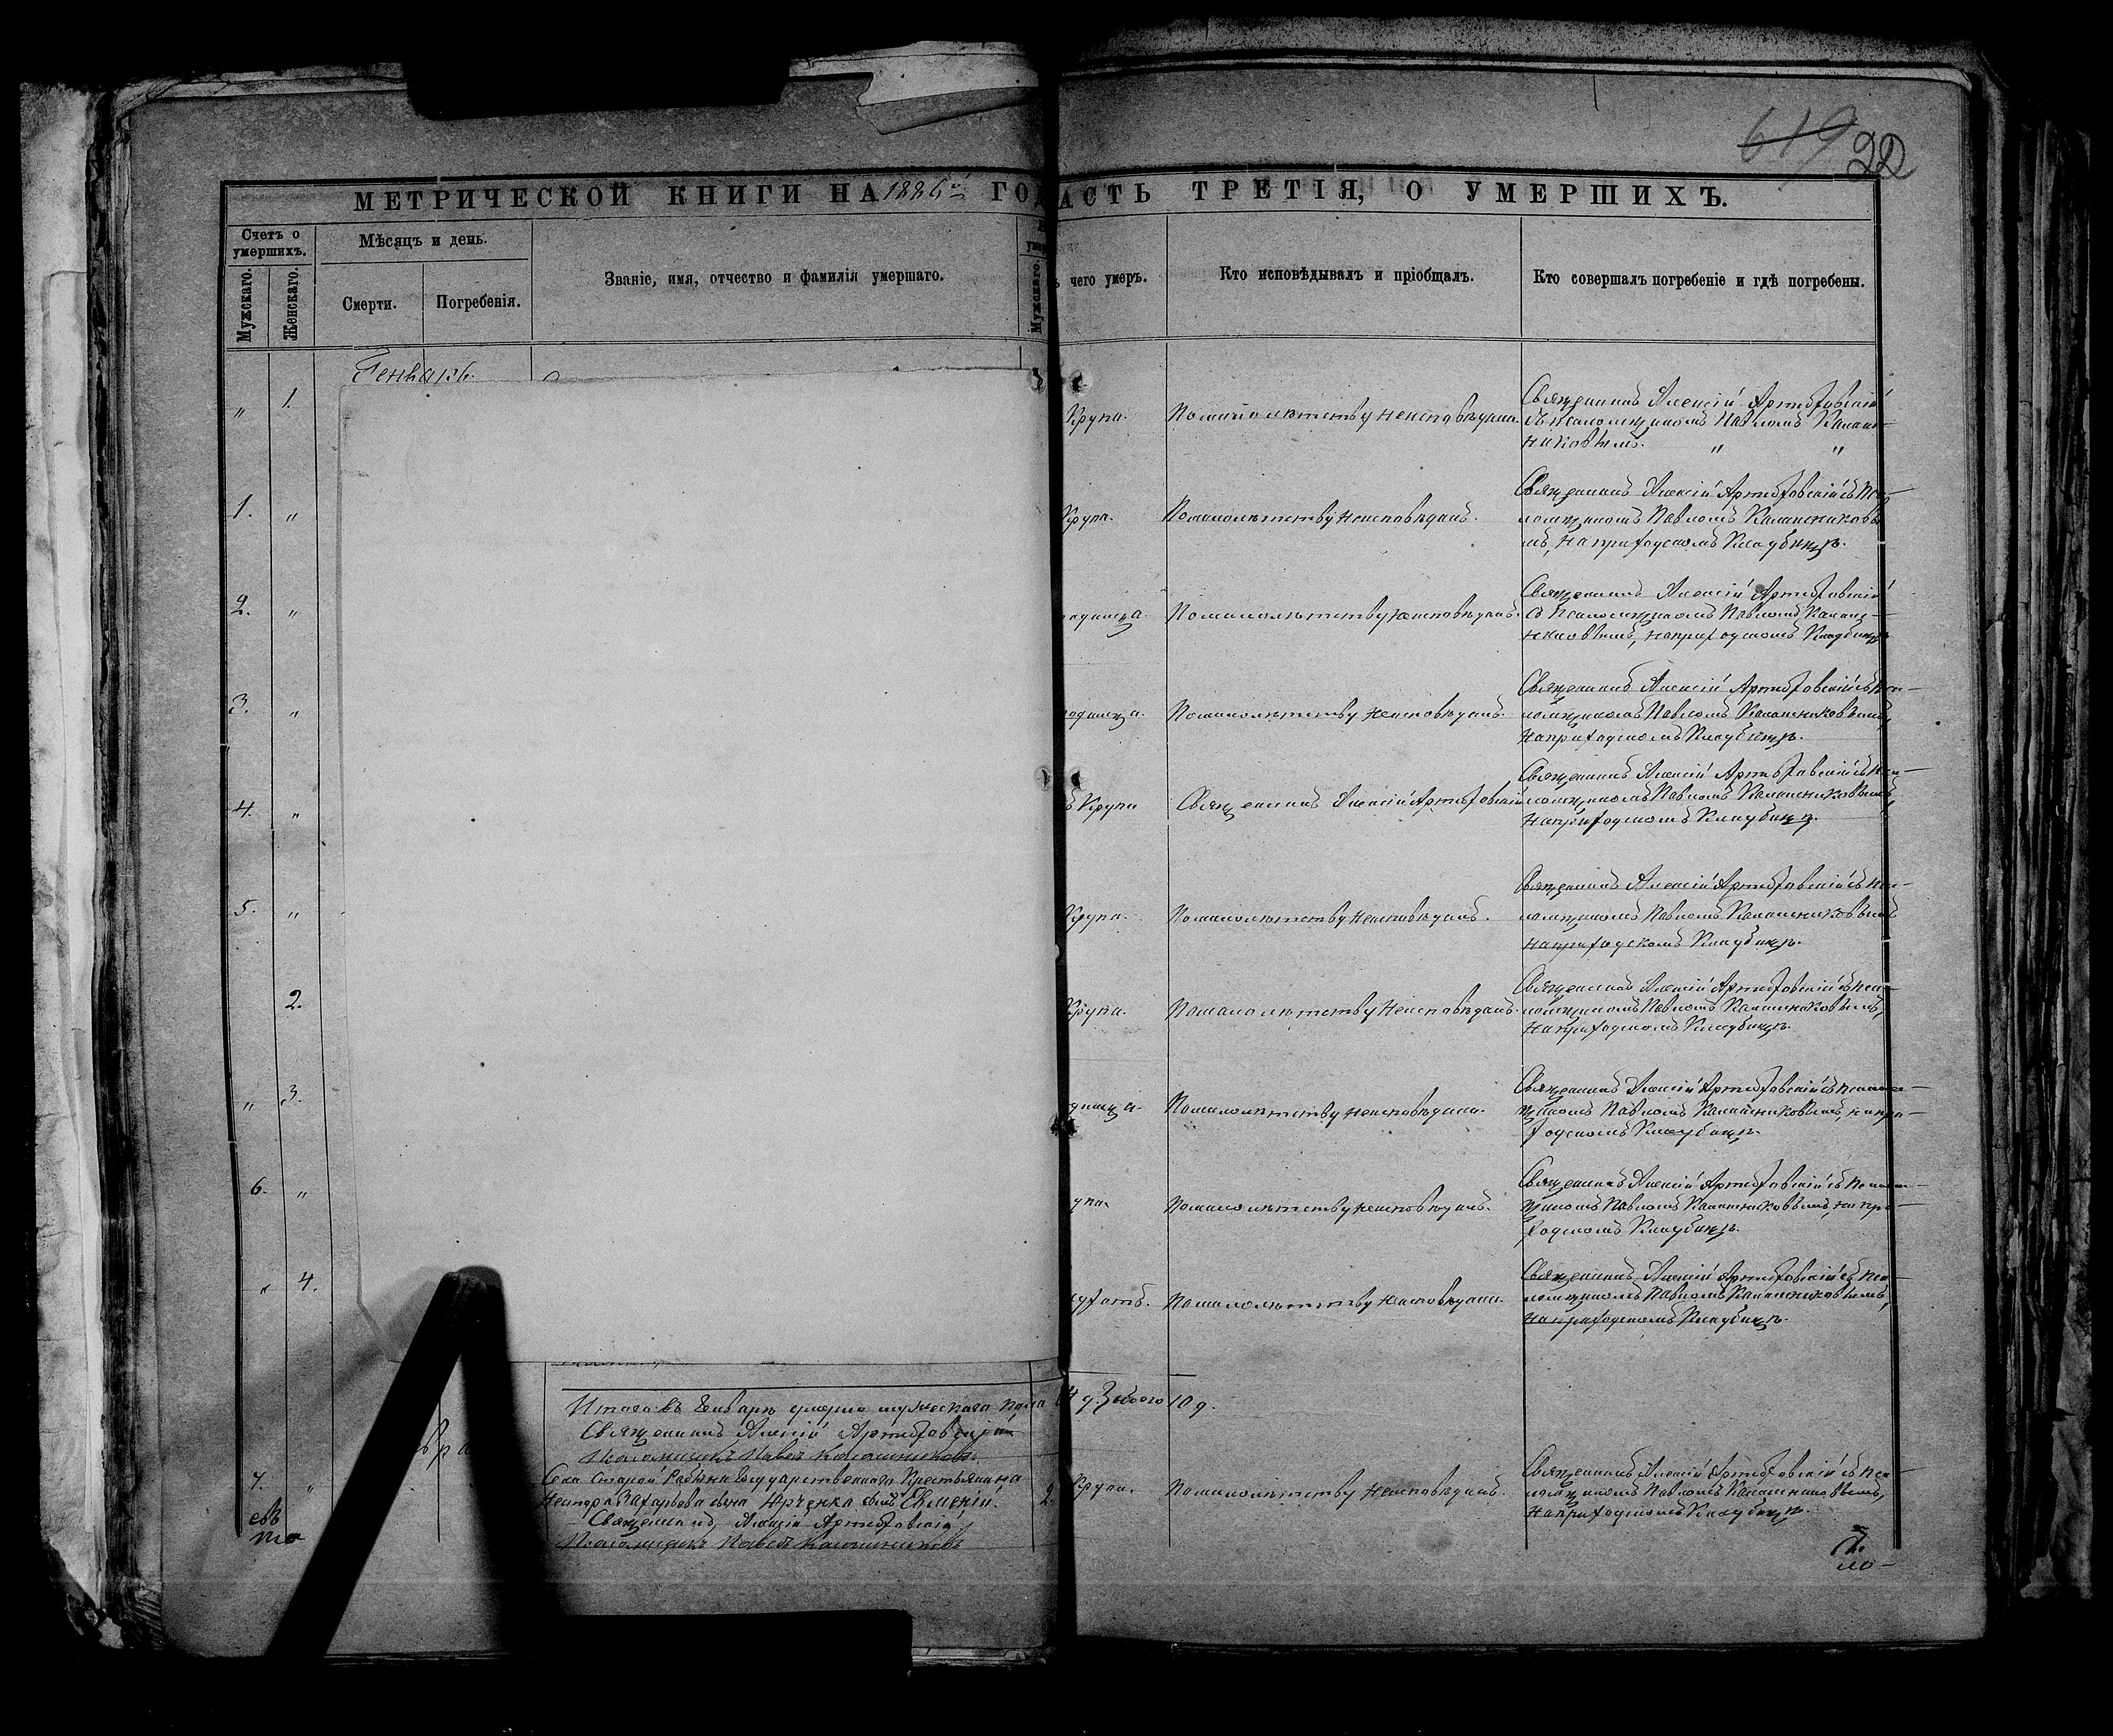 619 22
МЕТРИЧЕСКОЙ КНИГИ НА 1886й ГОД
АСТЬ ТРЕТІЯ, О УМЕРШИХЪ.
Счетъ о умершихъ.
Мужскаго.
Женскаго.
Мѣсяцъ и день.
Смерти.
Погребенія.
Званіе, имя, отчество и фамилія умершаго.
Мужскаго.
чего умеръ.
Кто исповѣдывалъ и пріобщалъ.
Кто совершалъ погребеніе и гдѣ погребены.
Генварь.
" 1.
Крупа.
Помалолѣтству неисповѣдана.
Священникъ Алексій Артюховскій
съ псаломщикомъ Павломъ Калаш-
никовымъ. " "
1. "
Крупа.
Помалолѣтству неисповѣданъ.
Священникъ Алексій Артюховскій съ Пса-
ломщикомъ Павломъ Калашниковы
мъ, на приходскомъ Кладбищѣ.
2. "
Помалолѣтству неисповѣданъ.
Священникъ Алексій Артюховскій
съ Псаломщикомъ Павломъ Калаш-
никовымъ, на приходскомъ Кладбищѣ
3. "
Помалолѣтству неисповѣданъ.
Священникъ Алексій Артюховскій съ Пса-
ломщикомъ Павломъ Калашниковымъ,
на приходскомъ Кладбищѣ.
4. "
Крупа
Священникъ Алексій Артюховскій
Священникъ Алексій Артюховскій съ Пса-
ломщикомъ Павломъ Калашниковымъ,
на приходскомъ Кладбищѣ.
5. "
Крупа.
Помалолѣтству неисповѣданъ.
Священникъ Алексій Артюховскій съ Пса-
ломщикомъ Павломъ Калашниковымъ
на приходскомъ Кладбищѣ.
2.
Крупа.
Помалолѣтству неисповѣданъ.
Священникъ Алексій Артюховскій съ Пса-
ломщикомъ Павломъ Калашниковымъ,
на приходскомъ Кладбищѣ.
" 3.
Помалолѣтству неисповѣдана.
Священникъ Алексій Артюховскій съ Псалом-
щикомъ Павломъ Калашниковымъ, на при-
ходскомъ Кладбищѣ.
6. "
упа.
Помалолѣтству неисповѣданъ.
Священникъ Алексій Артюховскій съ Псалом-
щикомъ Павломъ Калашниковымъ, на при-
ходскомъ Кладбищѣ.
" 4.
Помалолѣтству неисповѣдана.
Священникъ Алексій Артюховскій съ Пса-
ломщикомъ Павломъ Калашниковымъ,
на приходскомъ Кладбищѣ.
Итого въ Генварѣ умерло мужескаго пола
10 д.
Священникъ Алексій Артюховскій
Псаломщикъ Павелъ Калашниковъ
7. "
Села Старой Рябины Государственнаго Крестьянина
Нестора Захарьева сына Юрченка сынъ Евменій.
2
Крупа.
Помалолѣтству неисповѣданъ.
Священникъ Алексій Артюховскій съ Пса-
ломщикомъ Павломъ Калашниковымъ,
на приходскомъ Кладбищѣ.
Священникъ, Алексій Артюховскій
Псаломщикъ Павелъ Калашниковъ
ло-